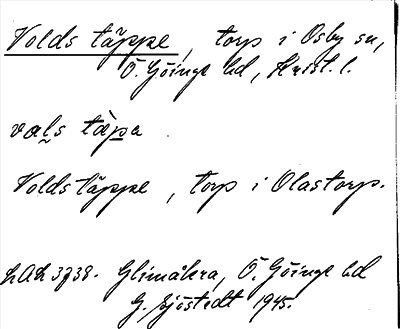 Volds täppe, torp i Osby sn,
Ö. Göinge hd, Krist. l.
vals täpa
Voldstäppe, torp i Olastorp.
LAL 3738. Glimåkra, Ö. Göinge hd
G. Sjöstedt 1945.